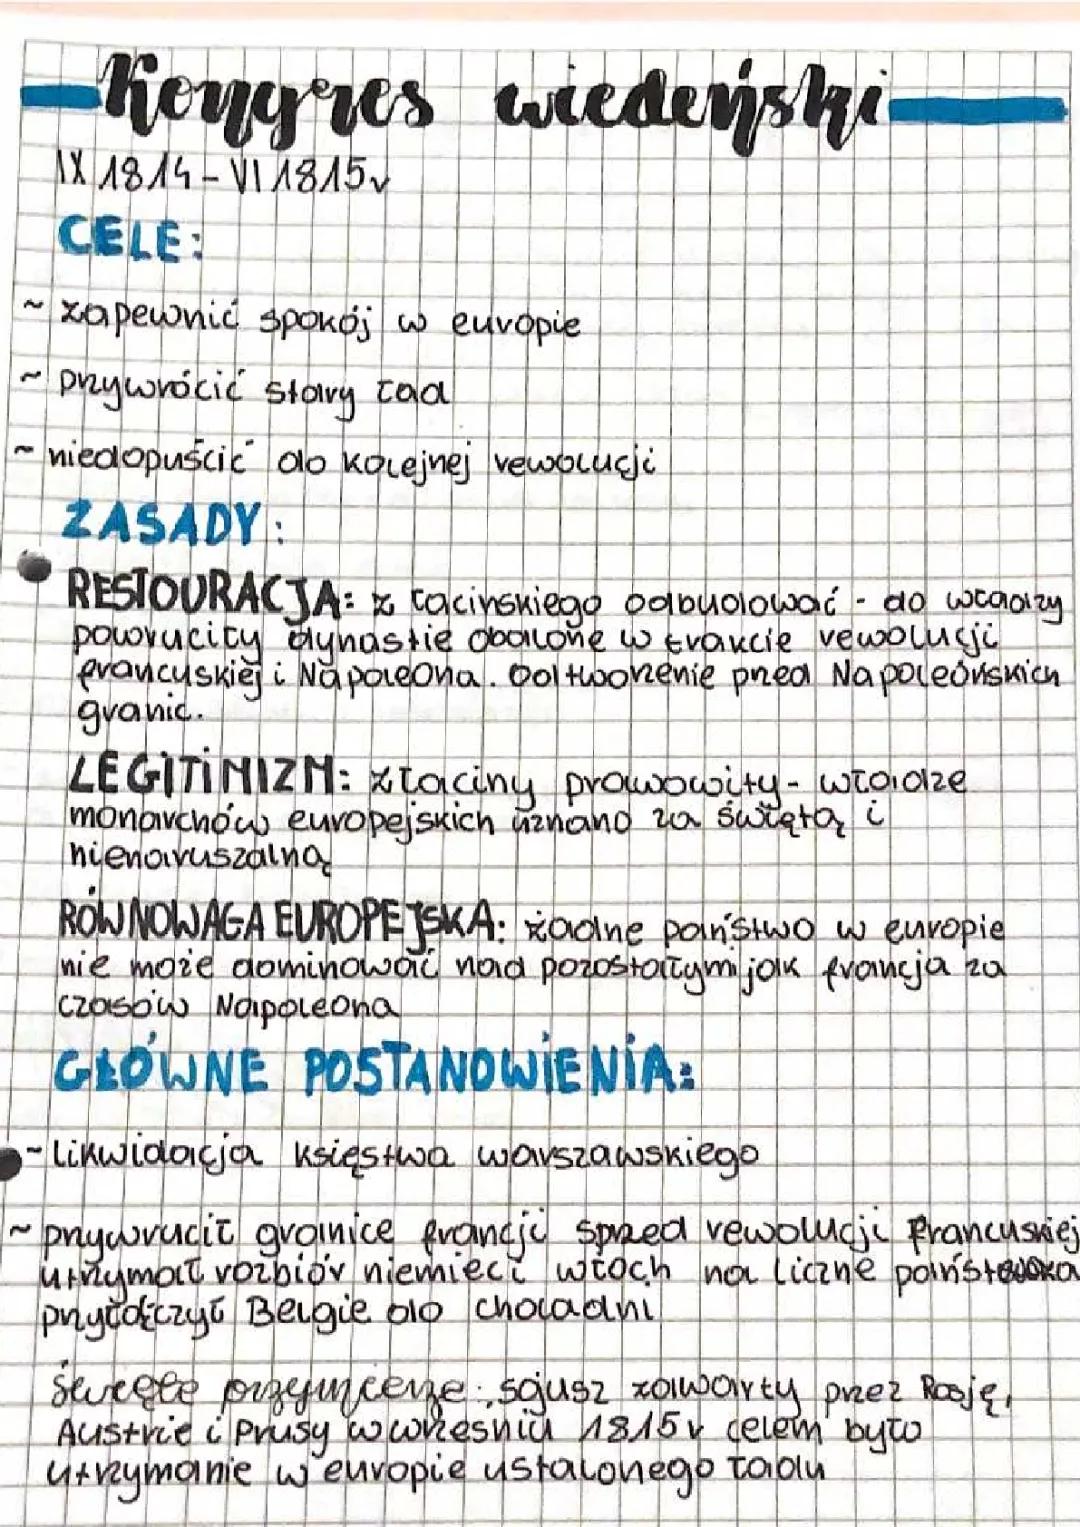 Kongres wiedeński
IX 1814 - VI 1815r
CELE:
~ zapewnić spokój w europie
~ przywrócić stary ład
~ niedopuścić do kolejnej rewolucji
ZASADY:
RESTOURACJA: z łacinskiego odbudować - do władzy
powruciły dynastie obalone w trakcie rewolucji
francuskiej i Napoleona. Odtworzenie przed Napoleońskich
granic.
LEGITIMIZM: z łaciny prawowity - władze
monarchów europejskich uznano za świętą i
nienaruszalną
RÓWNOWAGA EUROPEJSKA: żadne państwo w europie
nie może dominować nad pozostałymi jak francja za
czasów Napoleona
GŁÓWNE POSTANOWIENIA:
~ likwidacja księstwa warszawskiego
~ przywrucił granice francji sprzed rewolucji francuskiej
utrzymał rozbiór niemiec i włoch na liczne państewka
przyłączył Belgie do choladni
Święte przymierze: sojusz zawarty przez Rosję,
Austrie i Prusy w wrzesniu 1815r celem było
utrzymanie w europie ustalonego ładu